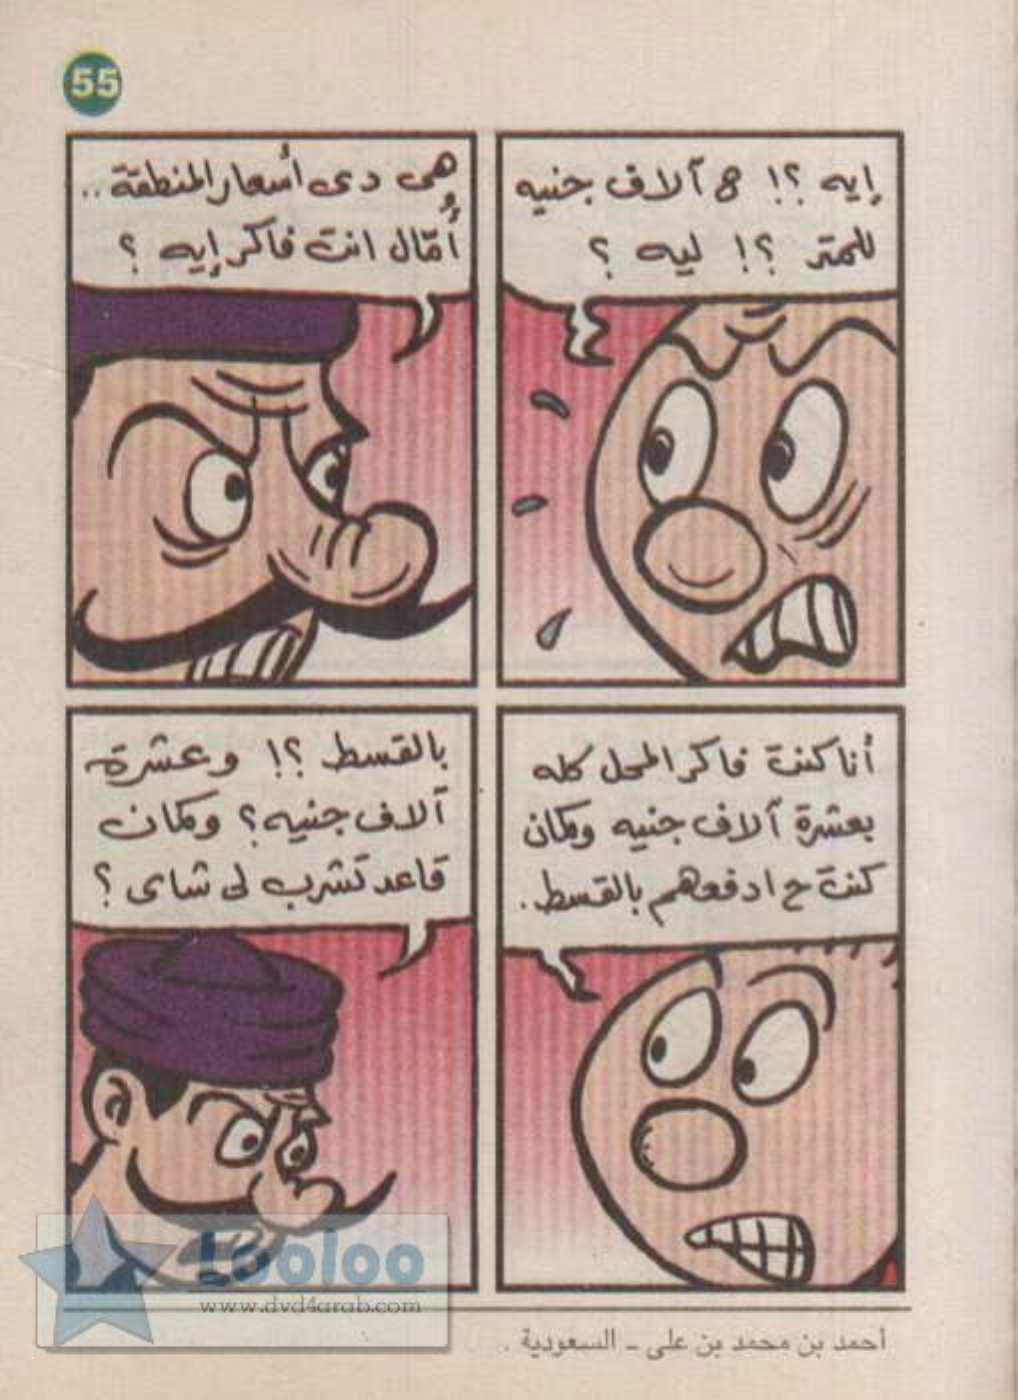 55
إيه ؟! 8 آلاف جنيه
للمتر ؟! ليه ؟
هى دى أسعار المنطقة ..
أُمّال انت فاكر إيه ؟
أنا كنت فاكر المحل كله
بعشرة آلاف جنيه وكمان
كنت ح ادفعهم بالقسط .
بالقسط ؟! وعشرة
آلاف جنيه ؟ وكمان
قاعد تشرب لى شاى ؟
Looloo
www.dvd4arab.com
أحمد بن محمد بن على - السعودية .